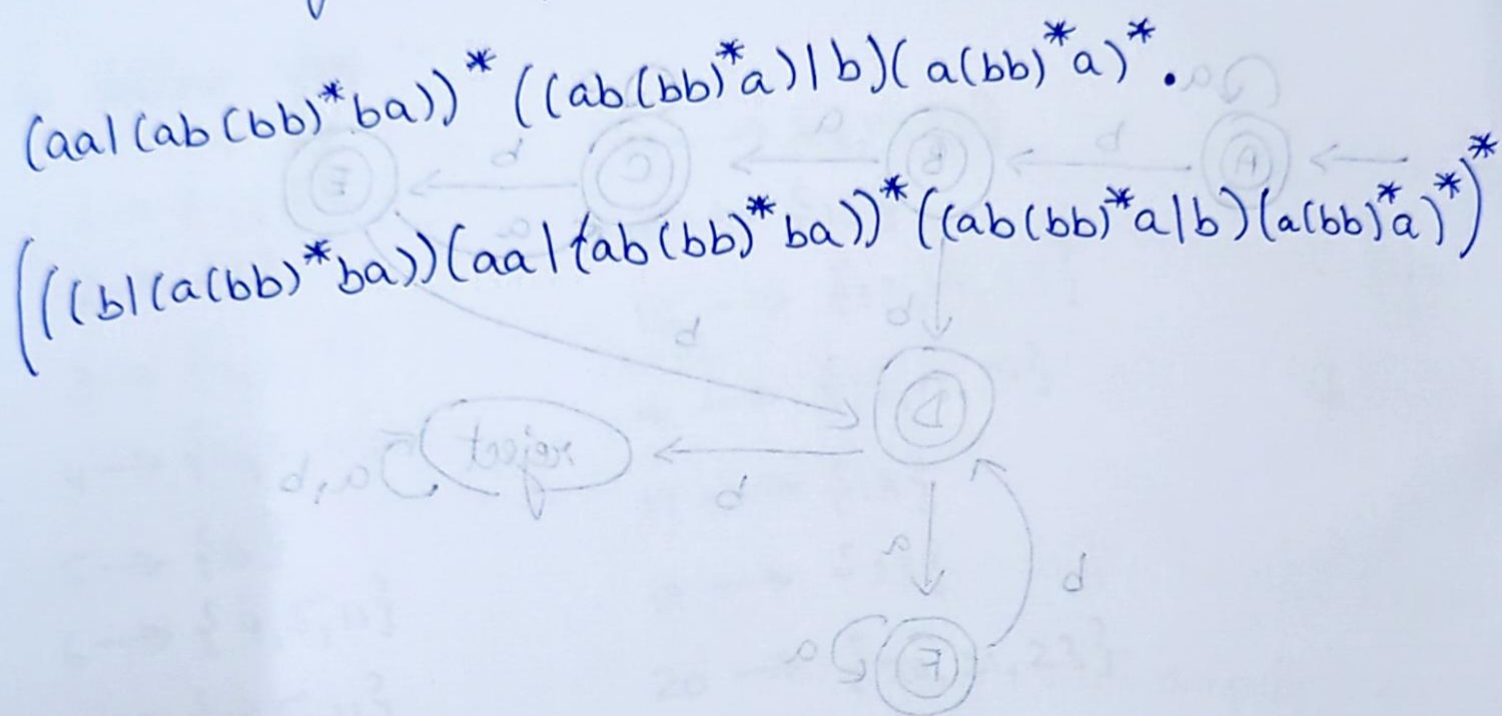 (aa|(ab(bb)*ba))*((ab(bb)*a)|b)(a(bb)*a)*.
(((b|(a(bb)*ba))(aa|(ab(bb)*ba))*((ab(bb)*a|b)(a(bb)*a)*)*